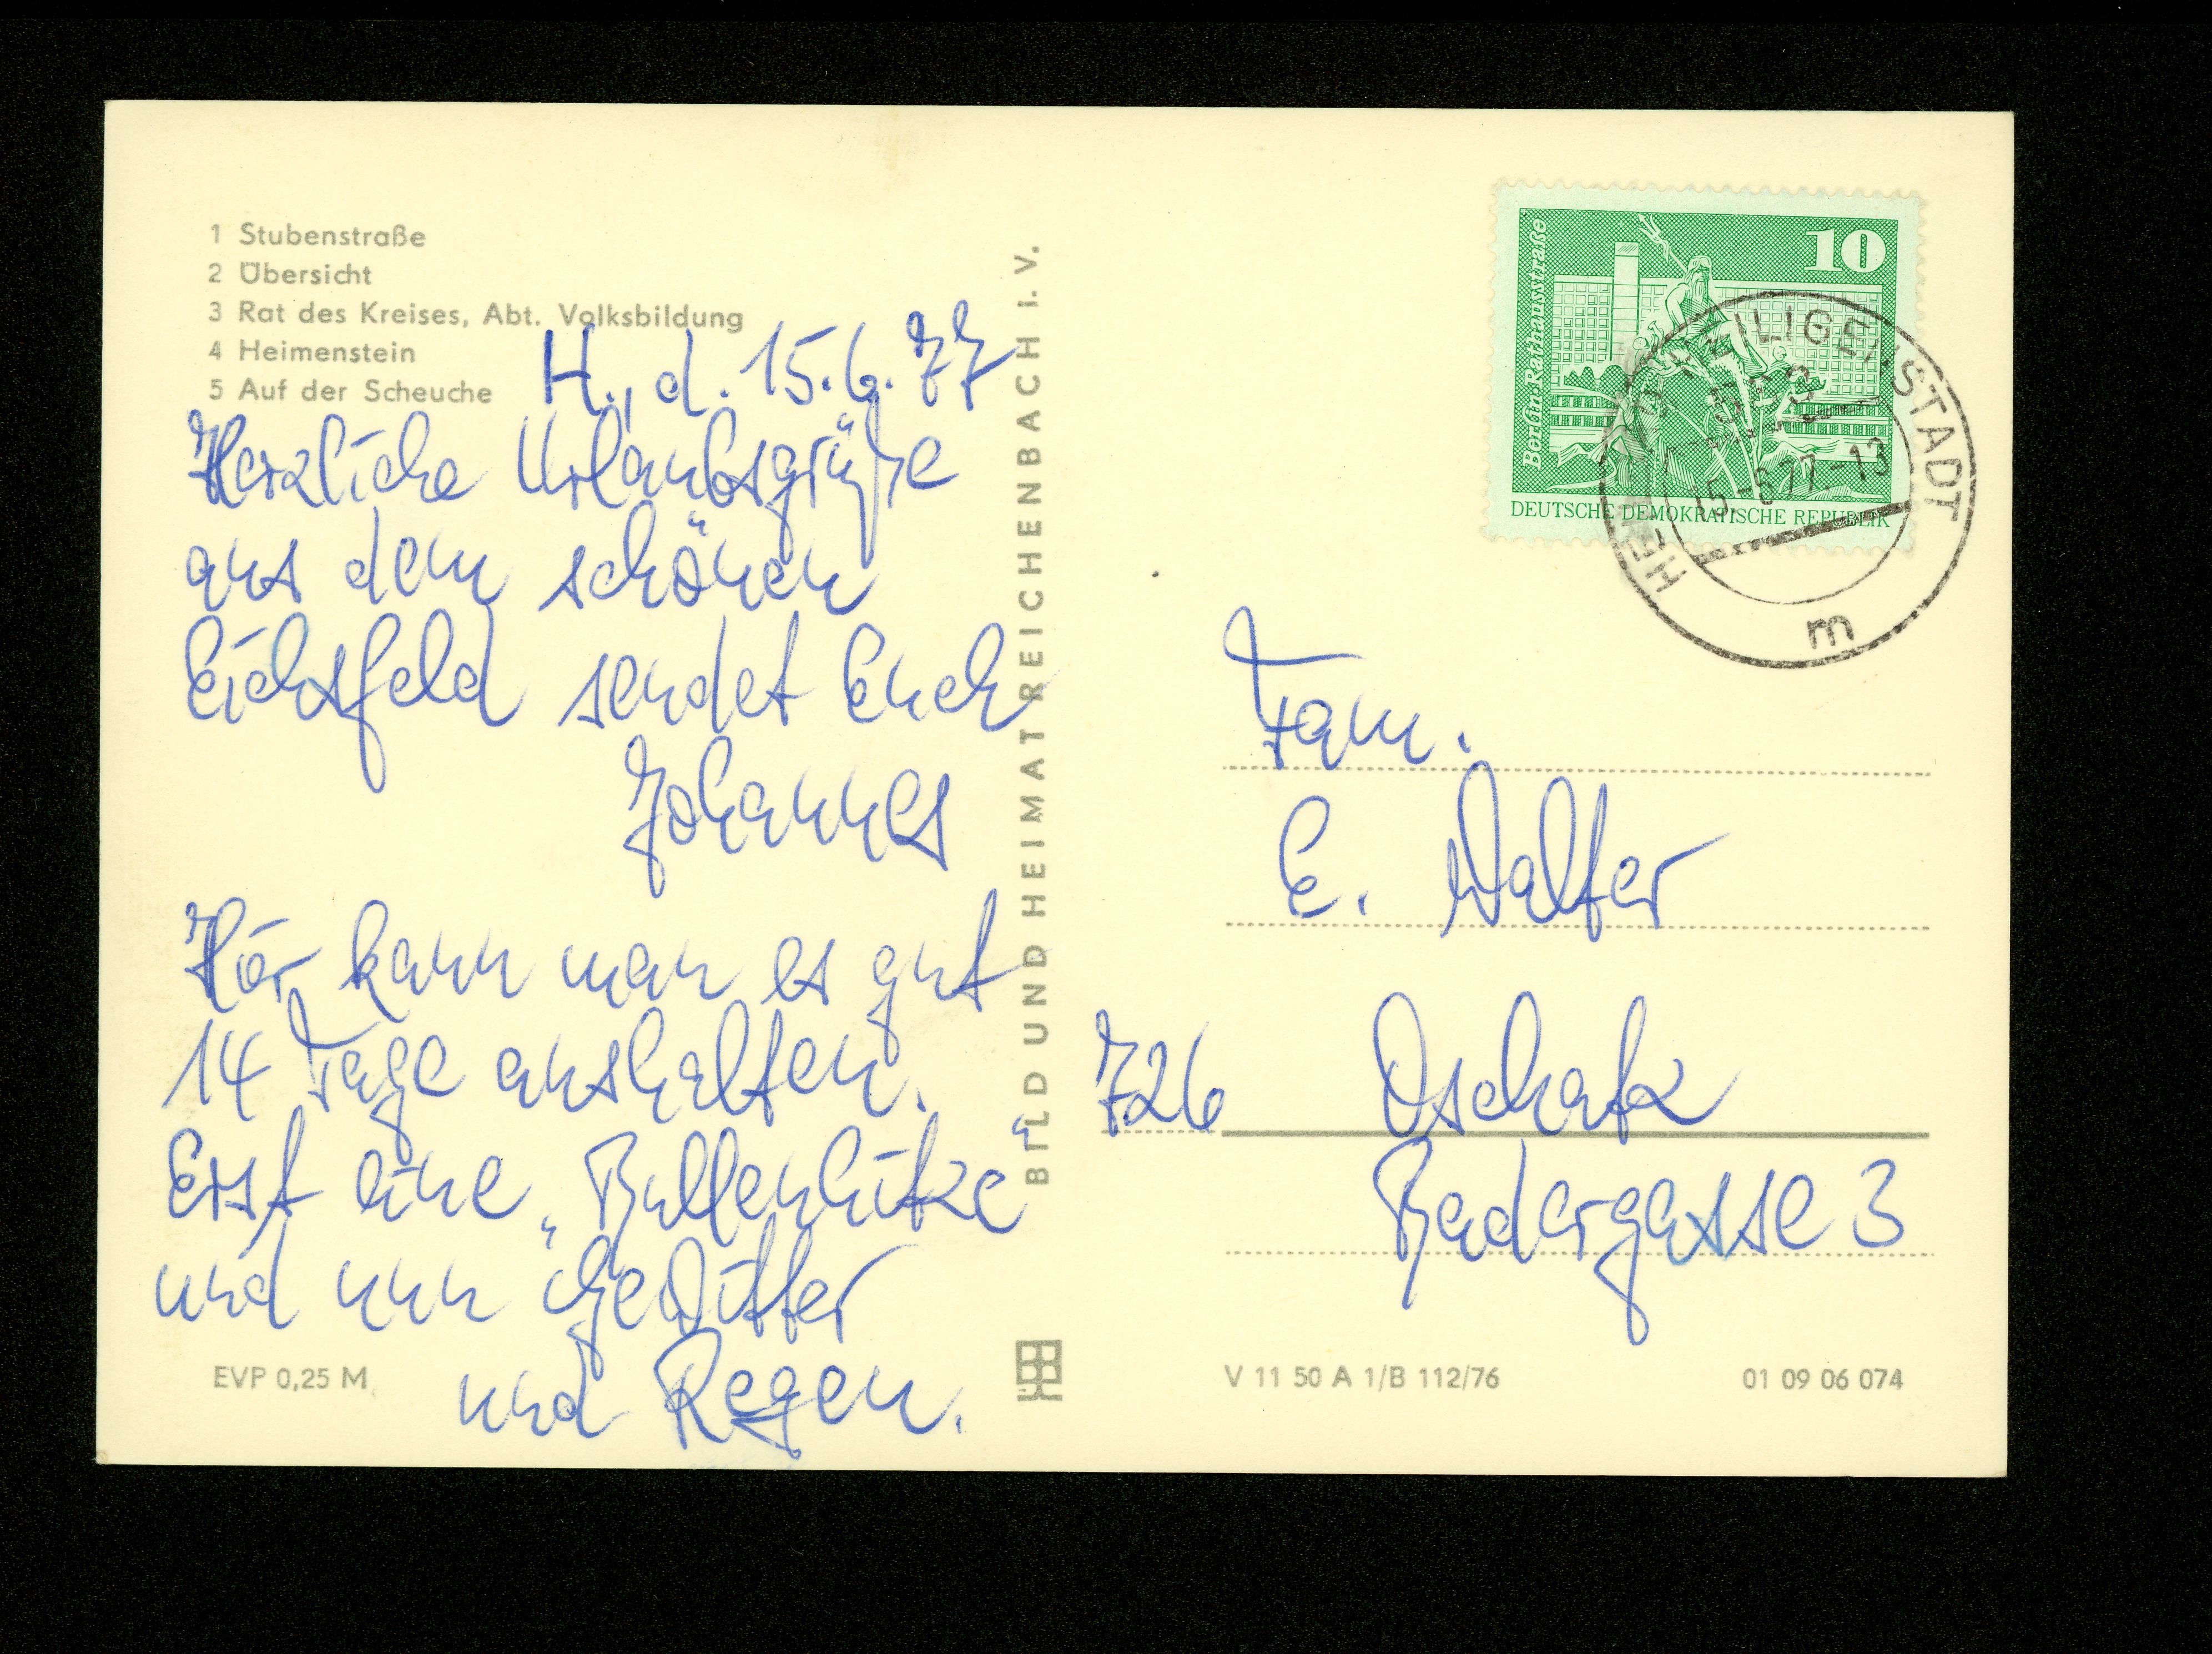 1 Stubenstraße
2 Übersicht
3 Rat des Kreises, Abt. Volksbildung
4 Heimenstein
5 Auf der Scheuche
H., d. 15.6.77
Herzliche Urlaubsgrüße
aus dem schönen
Eichsfeld sendet Euch
Johannes
Hier kann man es gut
14 Tage aushalten.
Erst eine „Bullenhitze"
und nun Gewitter
und Regen.
EVP 0,25 M
BILD UND HEIMAT REICHENBACH I. V.
10
Berlin Rathausstraße
DEUTSCHE DEMOKRATISCHE REPUBLIK
HEILIGENSTADT
15.-6.77.-13
m
Fam.
E. Walter
726 Oschatz
Badergasse 3
V 11 50 A 1/B 112/76
01 09 06 074